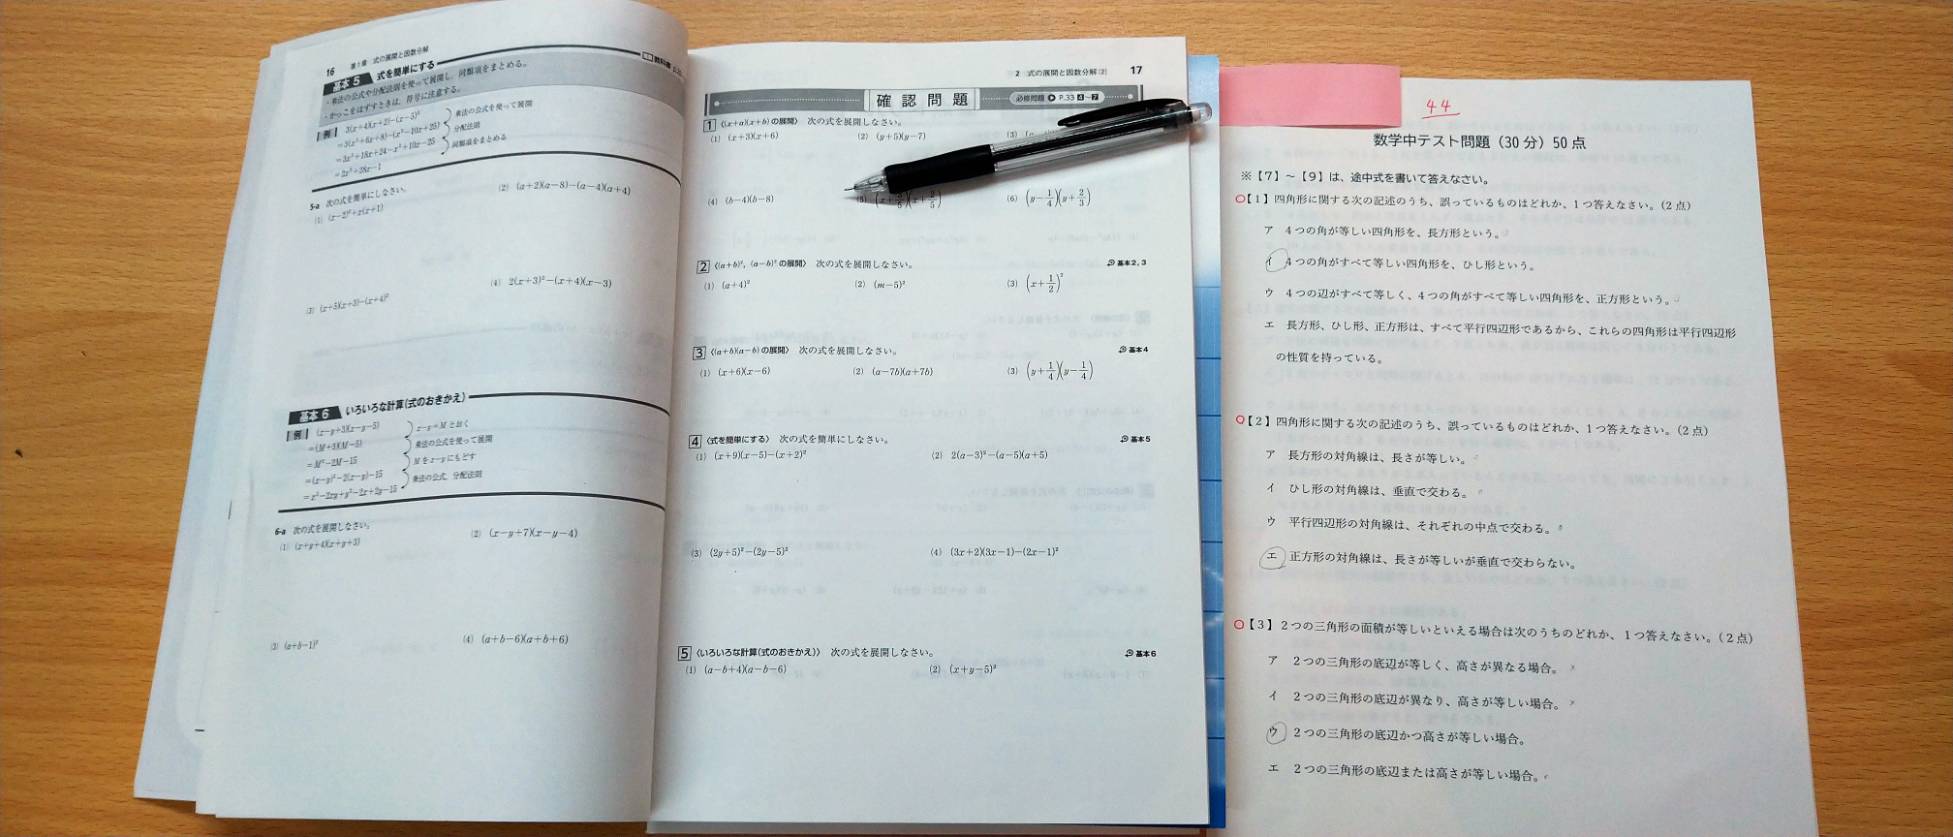 16 第1章 式の展開と因数分解
基本5 式を簡単にする
・乗法の公式や分配法則を使って展開し、同類項をまとめる。
・かっこをはずすときは、符号に注意する。
例 3(x+4)(x+2)−(x−5)²
=3(x²+6x+8)−(x²−10x+25)
=3x²+18x+24−x²+10x−25
=2x²+28x−1
乗法の公式を使って展開
分配法則
同類項をまとめる
5-a 次の式を簡単にしなさい。
(1) (x−2)²+x(x+1)
(2) (a+2)(a−8)−(a−4)(a+4)
(3) (x+5)(x+3)−(x+4)²
(4) 2(x+3)²−(x+4)(x−3)
基本6 いろいろな計算(式のおきかえ)
例 (x−y+3)(x−y−5)
=(M+3)(M−5)
=M²−2M−15
=(x−y)²−2(x−y)−15
=x²−2xy+y²−2x+2y−15
x−y=M とおく
乗法の公式を使って展開
M を x−y にもどす
乗法の公式、分配法則
6-a 次の式を展開しなさい。
(1) (x+y+4)(x+y+3)
(2) (x−y+7)(x−y−4)
(3) (a+b−1)²
(4) (a+b−6)(a+b+6)
2 式の展開と因数分解(2) 17
確認問題
必修問題 P.33 4〜7
1 〈(x+a)(x+b)の展開〉 次の式を展開しなさい。
(1) (x+3)(x+6) (2) (y+5)(y−7) (3)
(4) (b−4)(b−8) (5) (6) (y−1/4)(y+2/3)
2 〈(a+b)², (a−b)²の展開〉 次の式を展開しなさい。 基本2, 3
(1) (a+4)² (2) (m−5)² (3) (x+1/2)²
3 〈(a+b)(a−b)の展開〉 次の式を展開しなさい。 基本4
(1) (x+6)(x−6) (2) (a−7b)(a+7b) (3) (y+1/4)(y−1/4)
4 〈式を簡単にする〉 次の式を簡単にしなさい。 基本5
(1) (x+9)(x−5)−(x+2)² (2) 2(a−3)²−(a−5)(a+5)
(3) (2y+5)²−(2y−5)² (4) (3x+2)(3x−1)−(2x−1)²
5 〈いろいろな計算(式のおきかえ)〉 次の式を展開しなさい。 基本6
(1) (a−b+4)(a−b−6) (2) (x+y−5)²
44
数学中テスト問題（30分）50点
※【7】～【9】は、途中式を書いて答えなさい。
【1】四角形に関する次の記述のうち、誤っているものはどれか、1つ答えなさい。（2点）
ア 4つの角が等しい四角形を、長方形という。
イ 4つの角がすべて等しい四角形を、ひし形という。
ウ 4つの辺がすべて等しく、4つの角がすべて等しい四角形を、正方形という。
エ 長方形、ひし形、正方形は、すべて平行四辺形であるから、これらの四角形は平行四辺形
の性質を持っている。
【2】四角形に関する次の記述のうち、誤っているものはどれか、1つ答えなさい。（2点）
ア 長方形の対角線は、長さが等しい。
イ ひし形の対角線は、垂直で交わる。
ウ 平行四辺形の対角線は、それぞれの中点で交わる。
エ 正方形の対角線は、長さが等しいが垂直で交わらない。
【3】2つの三角形の面積が等しいといえる場合は次のうちのどれか、1つ答えなさい。（2点）
ア 2つの三角形の底辺が等しく、高さが異なる場合。
イ 2つの三角形の底辺が異なり、高さが等しい場合。
ウ 2つの三角形の底辺かつ高さが等しい場合。
エ 2つの三角形の底辺または高さが等しい場合。